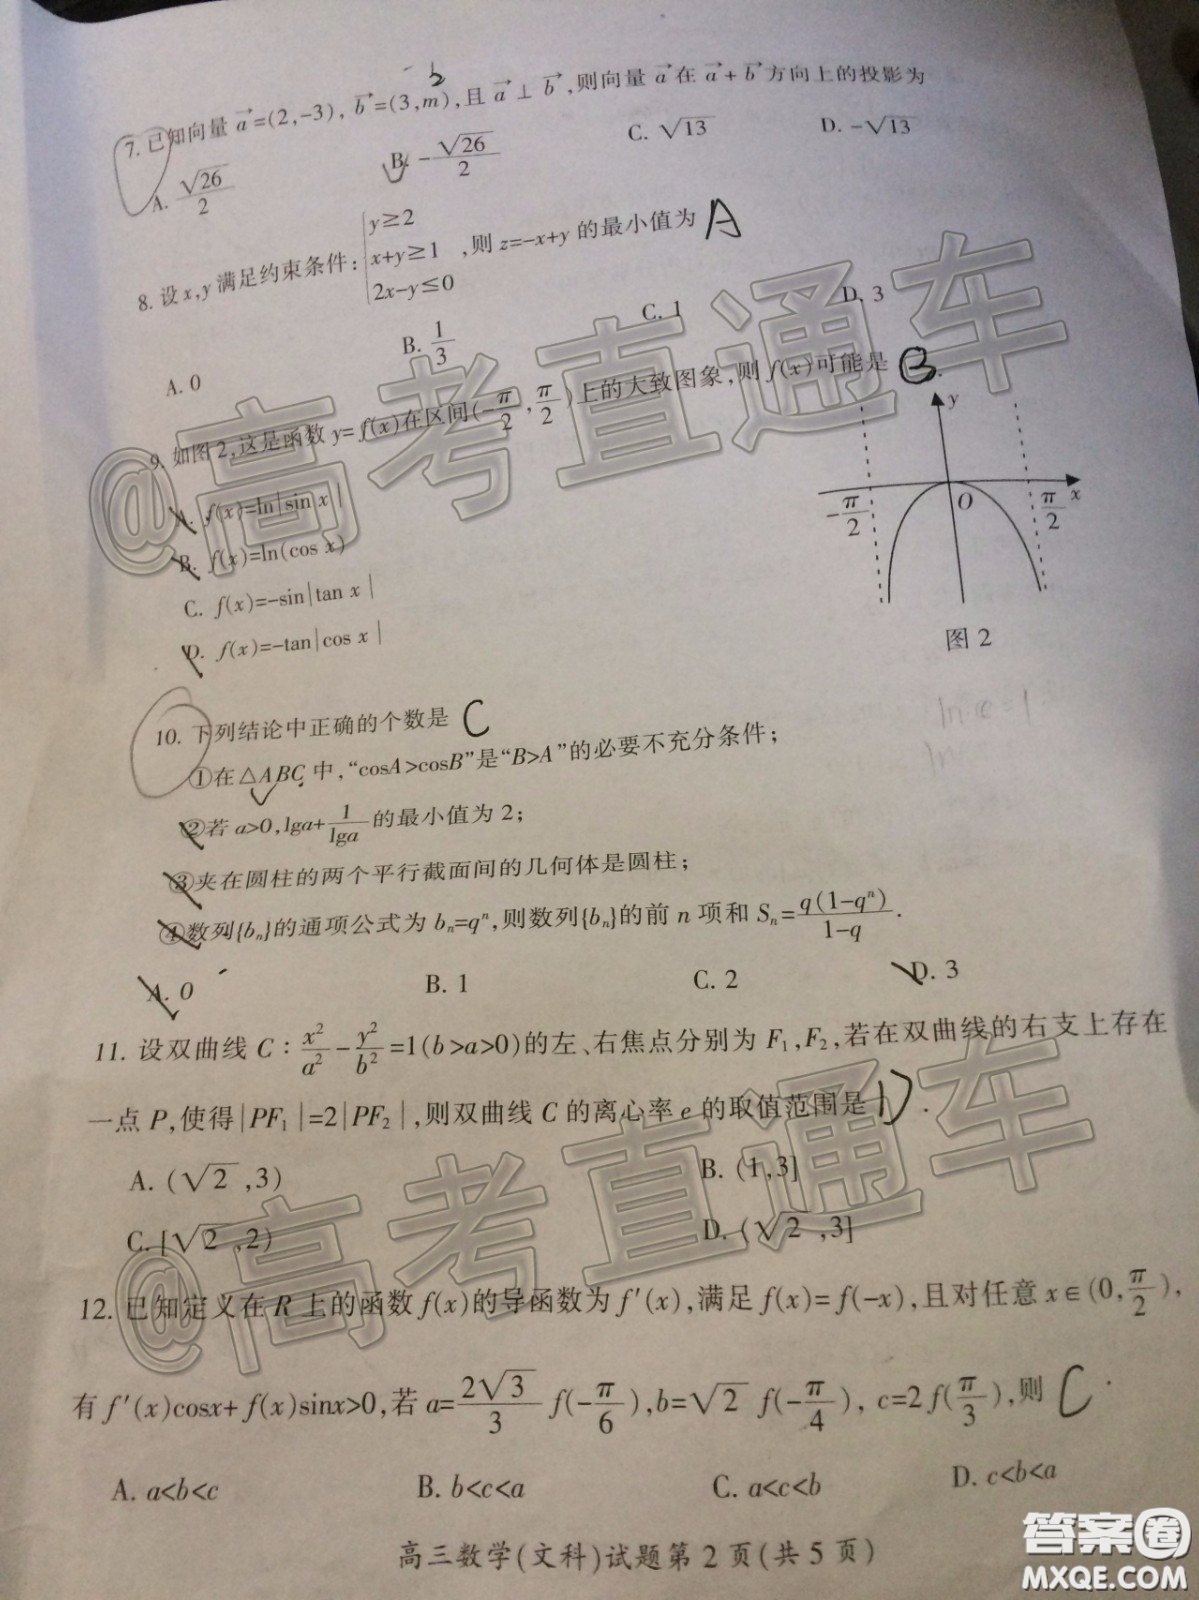 7. 已知向量 a⃗=(2,-3), b⃗=(3,m),且 a⃗⊥b⃗,则向量 a⃗ 在 a⃗+b⃗ 方向上的投影为
A. √26/2 B. -√26/2 C. √13 D. -√13
8. 设 x,y 满足约束条件: { y≥2
x+y≥1 ,则 z=-x+y 的最小值为 A
2x-y≤0
A. 0 B. 1/3 C. 1 D. 3
9. 如图2,这是函数 y=f(x)在区间(-π/2,π/2)上的大致图象,则 f(x)可能是 B.
A. f(x)=ln|sin x|
B. f(x)=ln(cos x)
C. f(x)=-sin|tan x|
D. f(x)=-tan|cos x|
y
-π/2 O π/2 x
图 2
10. 下列结论中正确的个数是 C
①在△ABC 中,“cosA>cosB”是“B>A”的必要不充分条件;
②若 a>0,lga+1/lga 的最小值为 2;
③夹在圆柱的两个平行截面间的几何体是圆柱;
④数列{bₙ}的通项公式为 bₙ=qⁿ,则数列{bₙ}的前 n 项和 Sₙ=q(1-qⁿ)/1-q.
A. 0 B. 1 C. 2 D. 3
11. 设双曲线 C:x²/a²-y²/b²=1(b>a>0)的左、右焦点分别为 F₁,F₂,若在双曲线的右支上存在
一点 P,使得|PF₁|=2|PF₂|,则双曲线 C 的离心率 e 的取值范围是 D.
A. (√2,3) B. (1,3]
C. [√2,2) D. (√2,3]
12. 已知定义在 R 上的函数 f(x)的导函数为 f′(x),满足 f(x)=f(-x),且对任意 x∈(0,π/2),
有 f′(x)cosx+f(x)sinx>0,若 a=2√3/3 f(-π/6),b=√2 f(-π/4), c=2f(π/3),则 C.
A. a<b<c B. b<c<a C. a<c<b D. c<b<a
高三数学(文科)试题第 2 页(共 5 页)
@高考直通车
@高考直通车
答案圈
MXQE.COM